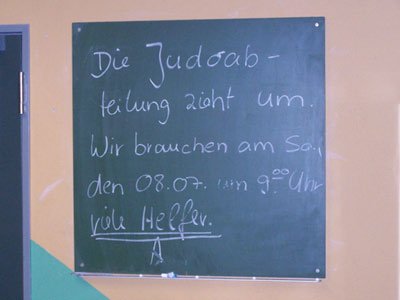 Die Judoab-
teilung zieht um.
Wir brauchen am Sa.,
den 08.07. um 9⁰⁰ Uhr
viele Helfer.
A